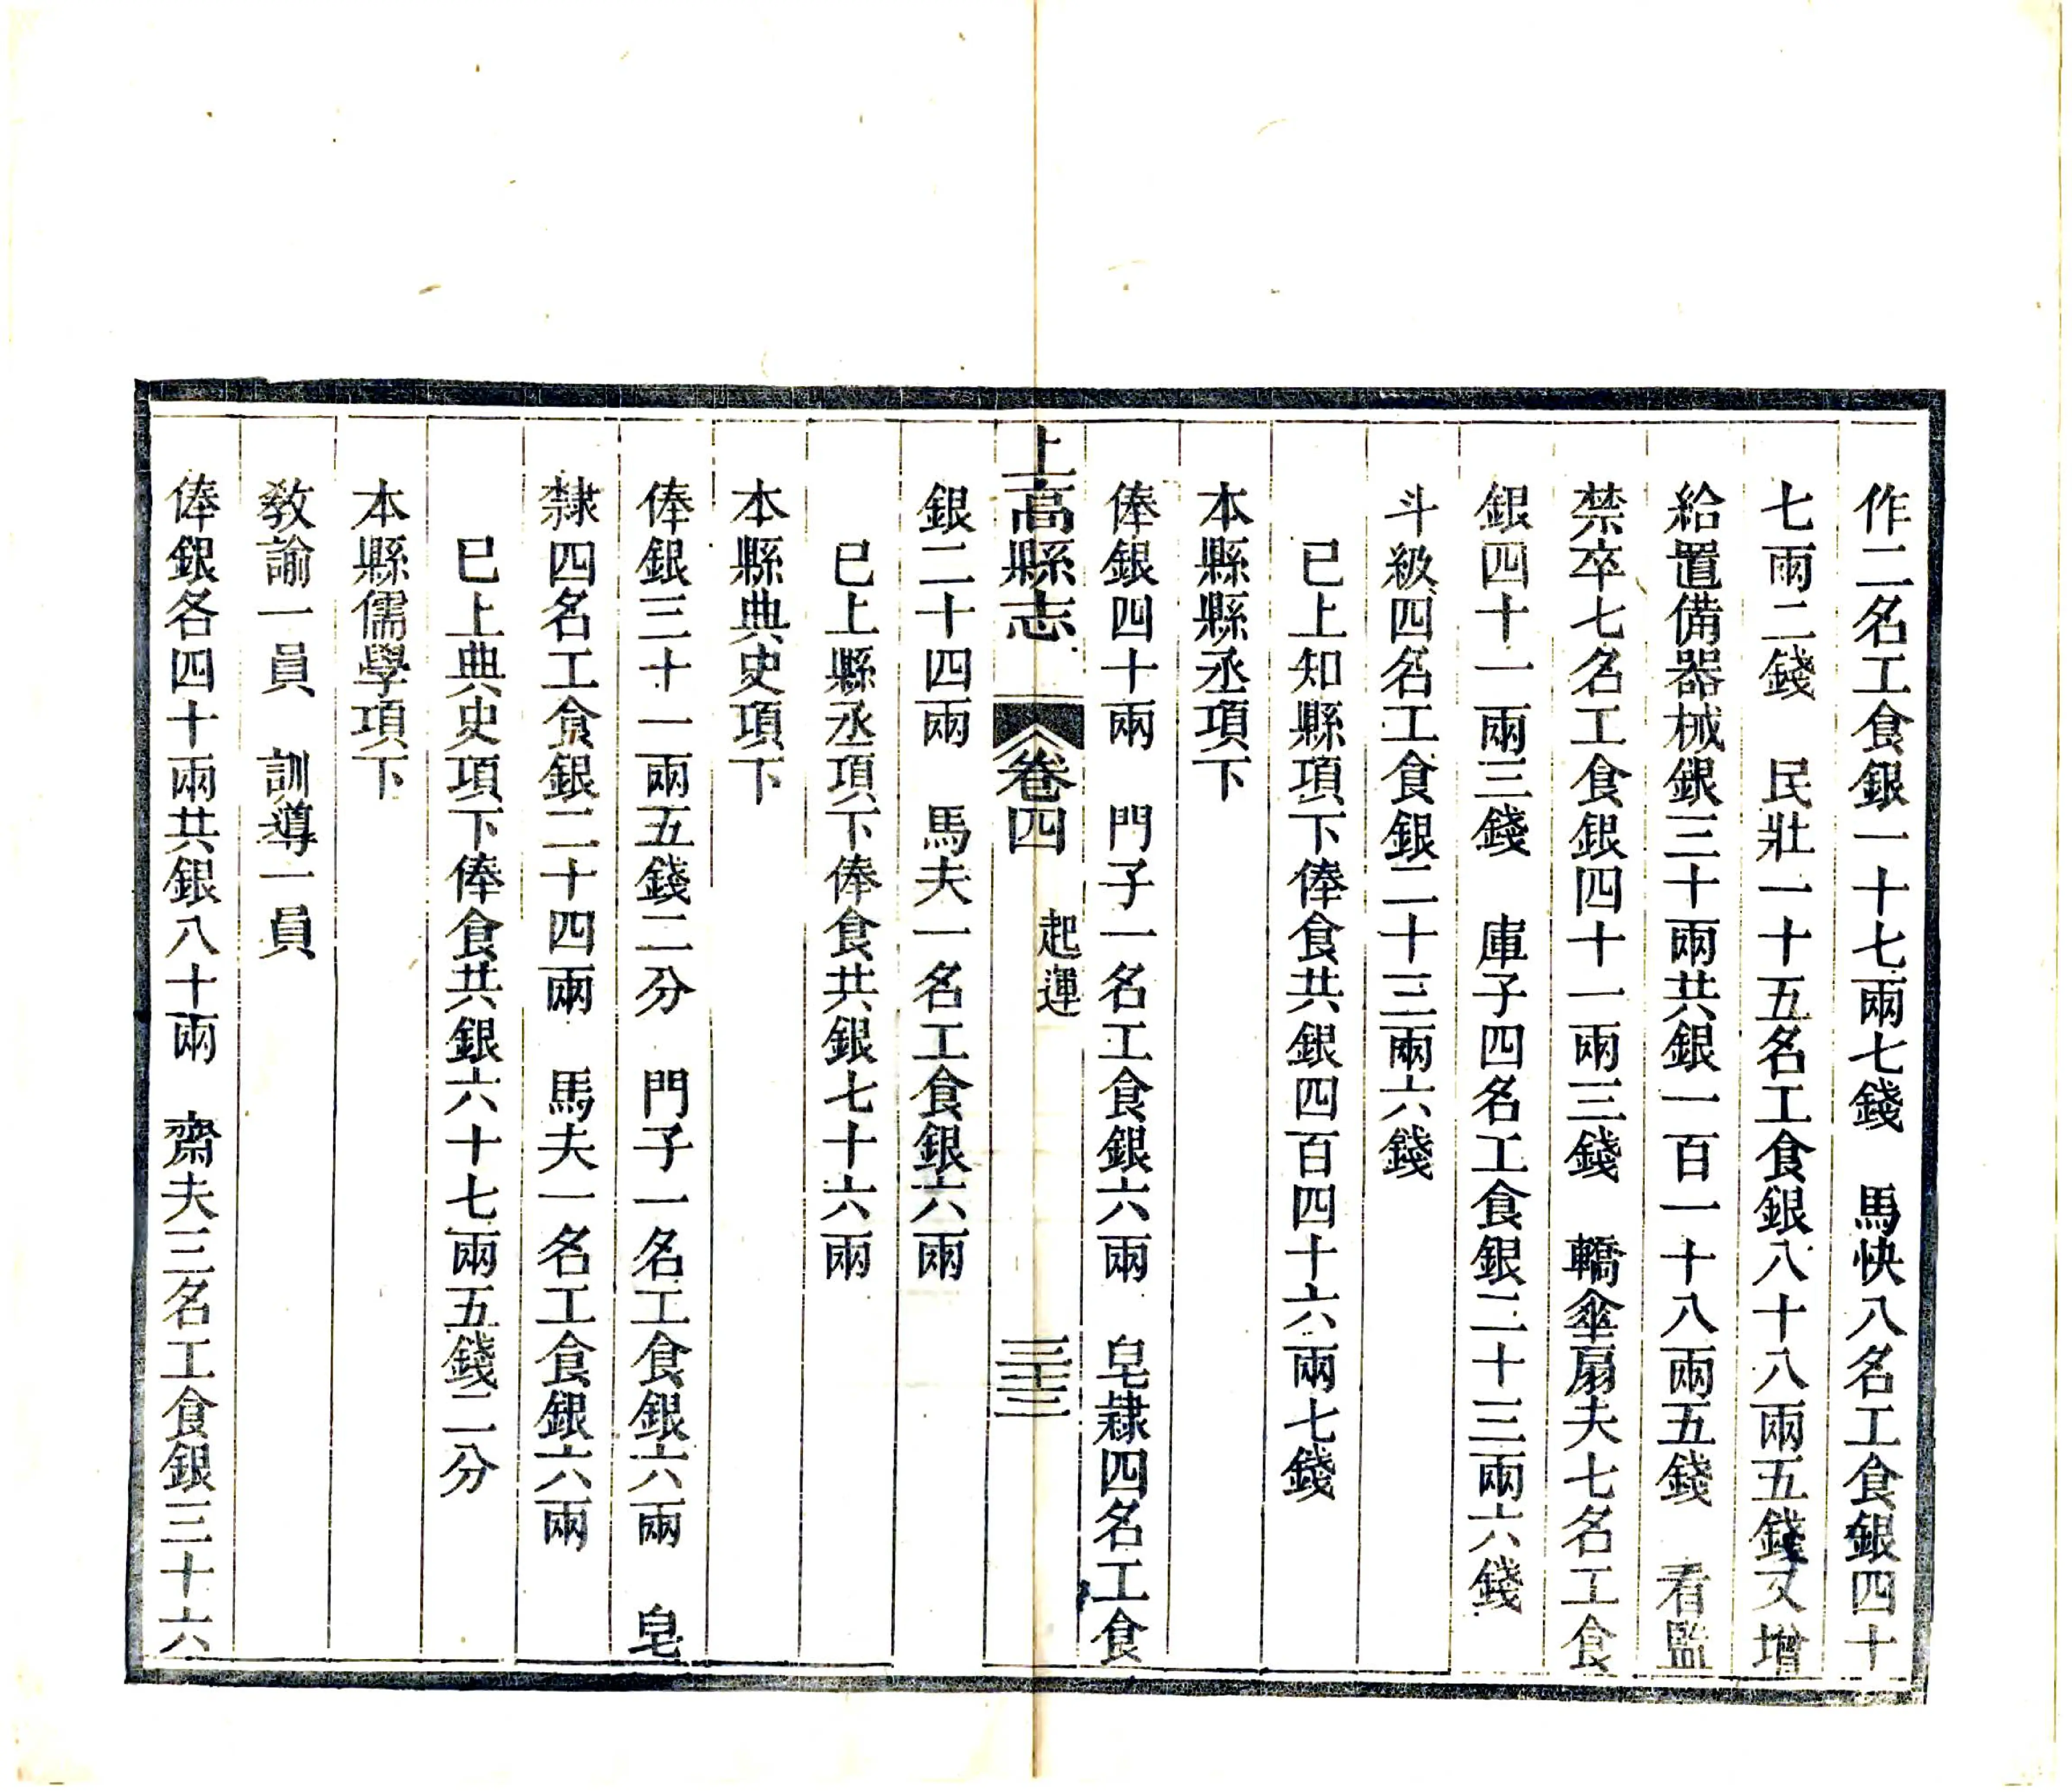 作二名工食銀一十七兩七錢　馬快八名工食銀四十
七兩二錢　民壯一十五名工食銀八十八兩五錢又增
給置備器械銀三十兩共銀一百一十八兩五錢　看監
禁卒七名工食銀四十一兩三錢　轎傘扇夫七名工食
銀四十一兩三錢　庫子四名工食銀二十三兩六錢
斗級四名工食銀二十三兩六錢
已上知縣項下俸食共銀四百四十六兩七錢
本縣縣丞項下
俸銀四十兩　門子一名工食銀六兩　皂隸四名工食
上高縣志　卷四　起運　三十三
銀二十四兩　馬夫一名工食銀六兩
已上縣丞項下俸食共銀七十六兩
本縣典史項下
俸銀三十一兩五錢二分　門子一名工食銀六兩　皂
隸四名工食銀二十四兩　馬夫一名工食銀六兩
已上典史項下俸食共銀六十七兩五錢二分
本縣儒學項下
敎諭一員　訓導一員
俸銀各四十兩共銀八十兩　齋夫三名工食銀三十六